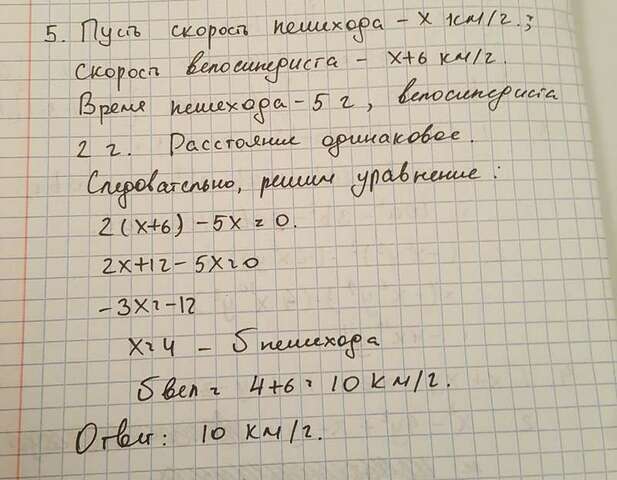 5. Пусть скорость пешехода - х км/г.;
Скорость велосипедиста - х+6 км/г.
Время пешехода - 5 г, велосипедиста
2 г. Расстояние одинаковое.
Следовательно, решим уравнение:
2(х+6) - 5х = 0.
2х+12 - 5х = 0
-3х = -12
х = 4 - S пешехода
S вел = 4+6 = 10 км/г.
Ответ: 10 км/г.